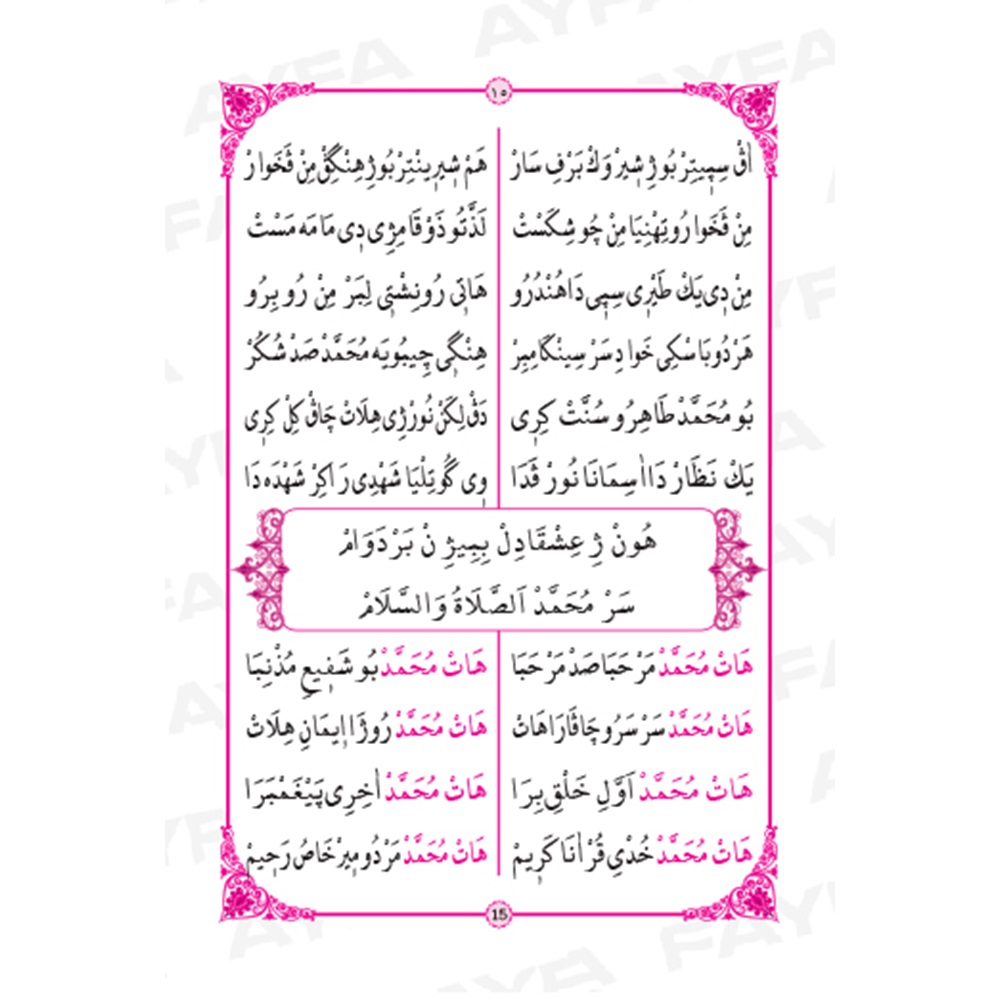 ١٥
اَڤْ سِپِيتِرْ بُو ژِ شِيرْ وَكْ بَرْفِ سَارْ
هَمْ شِيرِينْتِرْ بُو ژِ هِنْگِڤْ مِنْ ڤَخَوارْ
مِنْ ڤَخَوا رُوتِهْنِيَا مِنْ چُو شِكَسْتْ
لَذَّتُو ذَوْقَا مِژِى دِى مَا مَه مَسْتْ
مِنْ دِى يَكْ طَيْرِى سِپِى دَا هُنْدُرُو
هَاتِى رُونِشْتِى لِبَرْ مِنْ رُو بِرُو
هَرْدُو بَاسْكِى خَوا دِسَرْ سِينْگَا مِبِرْ
هِنْگِى چِيبُويَه مُحَمَّدْ صَدْ شُكُرْ
بُو مُحَمَّدْ طَاهِرُو سُنَّتْ كِرِى
دَڤْ لِكَنْ نُورْ ژِى هِلَاتْ چَاڤْ كِلْ كِرِى
يَكْ نَظَارْ دَا اٰسِمَانَا نُورْ ڤَدَا
وِى گُوتِلْيَا شَهْدِى رَاكِرْ شَهْدَه دَا
هُونْ ژِ عِشْقَا دِلْ بِبِيژِنْ بَرْدَوَامْ
سَرْ مُحَمَّدْ اَلصَّلَاةُ وَالسَّلَامْ
هَاتْ مُحَمَّدْ مَرْحَبَا صَدْ مَرْحَبَا
هَاتْ مُحَمَّدْ بُو شَفِيعِ مُذْنِبَا
هَاتْ مُحَمَّدْ سَرْ سَرُو چَاڤَا رَا هَاتْ
هَاتْ مُحَمَّدْ رُوژَا اِيمَانِ هِلَاتْ
هَاتْ مُحَمَّدْ اَوَّلِ خَلْقِ بِرَا
هَاتْ مُحَمَّدْ اٰخِرِى پَيْغَمْبَرَا
هَاتْ مُحَمَّدْ خُدِيِ قُرْاٰنَا كَرِيمْ
هَاتْ مُحَمَّدْ مَرْدُو مِيرْخَاصُ رَحِيمْ
15